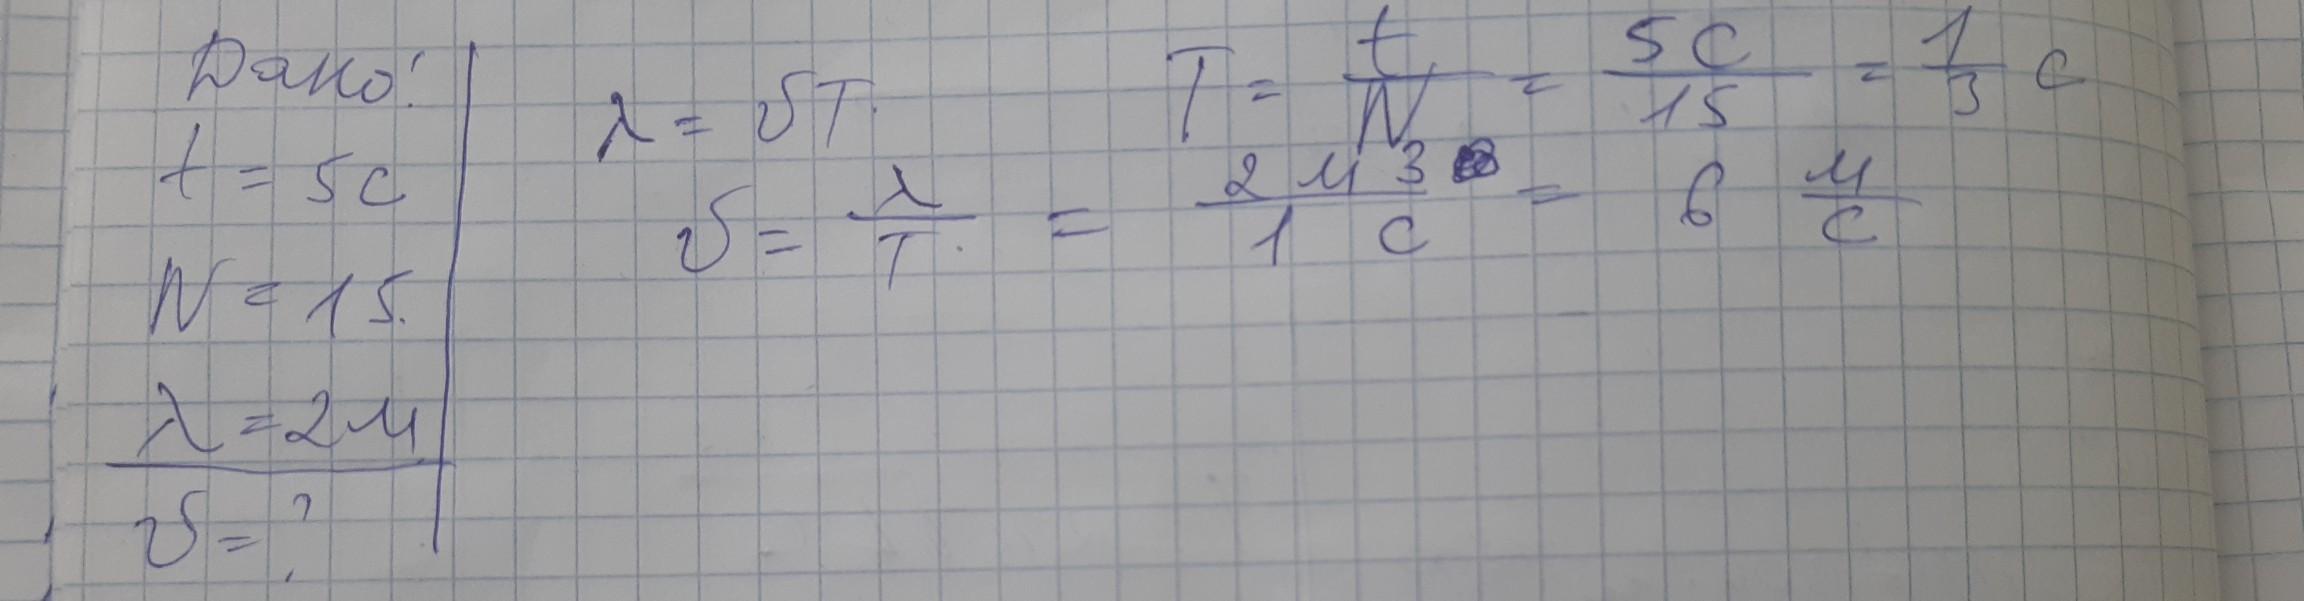 Дано:
t = 5с
N = 15.
λ = 2м
υ = ?
λ = υT.
T = t/N = 5 с/15 = 1/3 с
υ = λ/T. = 2 м 3/1 с = 6 м/с